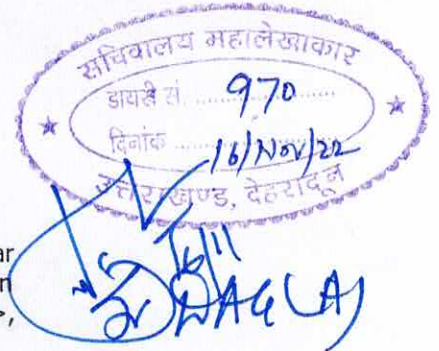 सचिवालय महालेखाकार
डायरी सं. ............ 970 ............
दिनांक ............ 16/Nov/22
उत्तराखण्ड, देहरादून
16/11
ar
n
DAG (A)